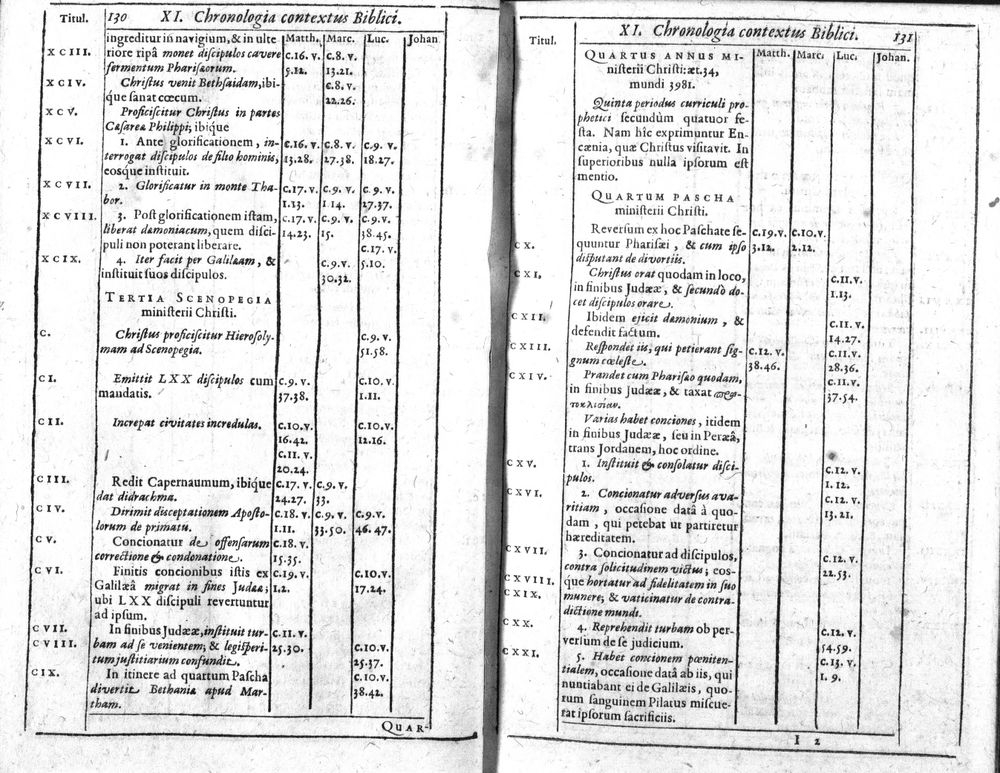 Titul. 130 XI. Chronologia contextus Biblici.
Matth. Marc. Luc. Johan.
ingreditur in navigium, & in ulte
XCIII. riore ripâ monet discipulos cavere c.16.v. c.8.v.
fermentum Pharisæorum. 5.12. 13.21.
XCIV. Christus venit Bethsaidam, ibi c.8.v.
que sanat cœcum. 22.26.
XCV. Proficiscitur Christus in partes
Cæsareæ Philippi; ibique
XCVI. 1. Ante glorificationem, in- c.16.v. c.8.v. c.9.v.
terrogat discipulos de filio hominis, 13.28. 27.38. 18.27.
eosque instituit.
XCVII. 2. Glorificatur in monte Tha- c.17.v. c.9.v. c.9.v.
bor. 1.13. 1 14. 27.37.
XCVIII. 3. Post glorificationem istam, c.17.v. c.9.v. c.9.v.
liberat dæmoniacum, quem disci- 14.23. 15. 38.45.
puli non poterant liberare. c.17.v.
XCIX. 4. Iter facit per Galilæam, & c.9.v. 5.10.
instituit suos discipulos. 30.32.
TERTIA SCENOPEGIA
ministerii Christi.
C. Christus proficiscitur Hierosoly- c.9.v.
mam ad Scenopegia. 51.58.
CI. Emittit LXX discipulos cum c.9.v. c.10.v.
mandatis. 37.38. 1.11.
CII. Increpat civitates incredulas. c.10.v. c.10.v.
16.42. 12.16.
c.11.v.
20.24.
CIII. Redit Capernaumum, ibique c.17.v. c.9.v.
dat didrachma. 24.27. 33.
CIV. Dirimit disceptationem Aposto- c.18.v. c.9.v. c.9.v.
lorum de primatu. 1.11. 33.50. 46.47.
CV. Concionatur de offensarum c.18.v.
correctione & condonatione. 15.35.
CVI. Finitis concionibus istis ex c.19.v. c.10.v.
Galilæâ migrat in fines Judææ; 1.2. 17.24.
ubi LXX discipuli revertuntur
ad ipsum.
CVII. In finibus Judææ, instituit tur- c.11.v.
CVIII. bam ad se venientem; & legisperi- 25.30. c.10.v.
tum justitiarium confundit. 25.37.
CIX. In itinere ad quartum Pascha c.10.v.
divertit Bethaniæ apud Mar- 38.42.
tham.
QUAR-
XI. Chronologia contextus Biblici. 131
Titul. Matth. Marc. Luc. Johan.
QUARTUS ANNUS MI-
nisterii Christi: æt.34,
mundi 3981.
Quinta periodus curriculi pro
phetici secundùm quatuor fe-
sta. Nam hîc exprimuntur En-
cænia, quæ Christus visitavit. In
superioribus nulla ipsorum est
mentio.
QUARTUM PASCHA
ministerii Christi.
Reversum ex hoc Paschate se- c.19.v. c.10.v.
CX. quuntur Pharisæi, & cum ipso 3.12. 2.12.
disputant de divortiis.
CXI. Christus orat quodam in loco, c.11.v.
in finibus Judææ, & secundò do- 1.13.
cet discipulos orare.
CXII. Ibidem ejicit dæmonium, & c.11.v.
defendit factum. 14.27.
CXIII. Respondet iis, qui petierant sig- c.12.v. c.11.v.
gnum cœleste. 38.46. 28.36.
CXIV. Prandet cum Pharisæo quodam, c.11.v.
in finibus Judææ, & taxat πρω- 37.54.
τοκλισίαν.
Varias habet conciones, itidem
in finibus Judææ, seu in Peræâ,
trans Jordanem, hoc ordine.
CXV. 1. Instituit & consolatur disci- c.12.v.
pulos. 1.12.
CXVI. 2. Concionatur adversus ava- c.12.v.
ritiam, occasione datâ à quo- 13.21.
dam, qui petebat ut partiretur
hæreditatem.
CXVII. 3. Concionatur ad discipulos, c.12.v.
contra solicitudinem victus; eos- 22.53.
CXVIII. que hortatur ad fidelitatem in suo
CXIX. munere; & vaticinatur de contra-
dictione mundi.
CXX. 4. Reprehendit turbam ob per- c.12.v.
versum de se judicium. 54.59.
CXXI. 5. Habet concionem pœniten- c.13.v.
tialem, occasione datâ ab iis, qui 1. 9.
nuntiabant ei de Galilæis, quo-
rum sanguinem Pilatus miscue-
rat ipsorum sacrificiis.
I 2